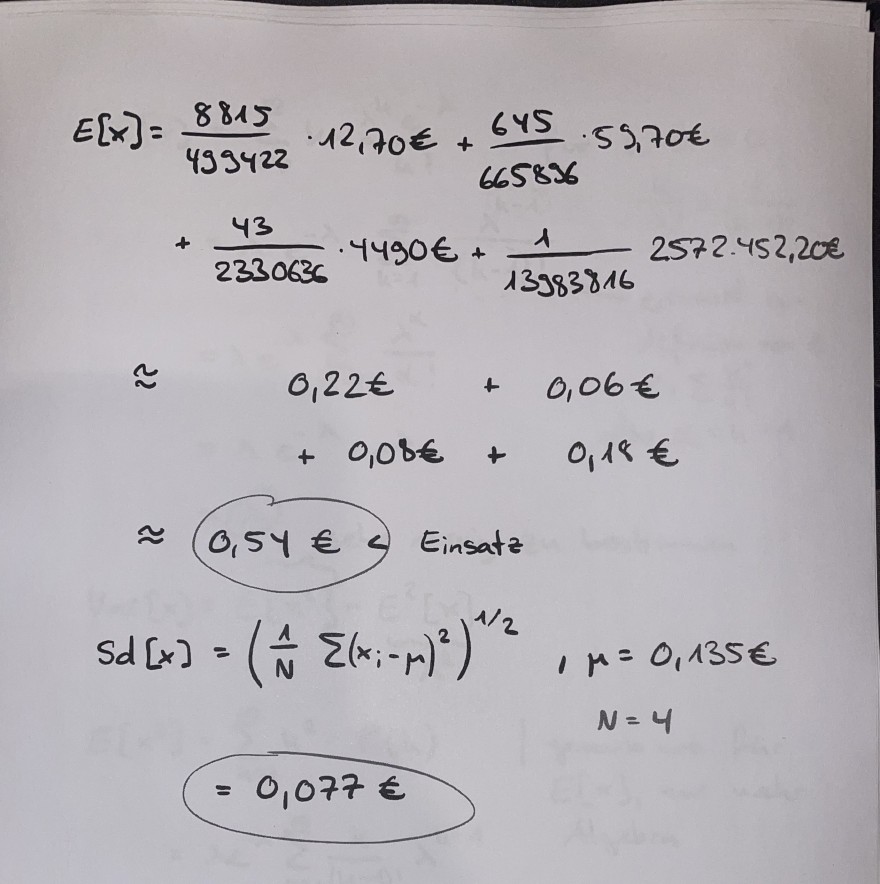 E[x] = 8815/499422 · 12,70€ + 645/665896 · 59,70€
+ 43/2330636 · 4490€ + 1/13983816 2572.452,20€
≈ 0,22€ + 0,06€
+ 0,08€ + 0,18€
≈ 0,54 € < Einsatz
Sd[x] = (1/N Σ(xᵢ-μ)²)^1/2 , μ = 0,135€
N = 4
= 0,077 €